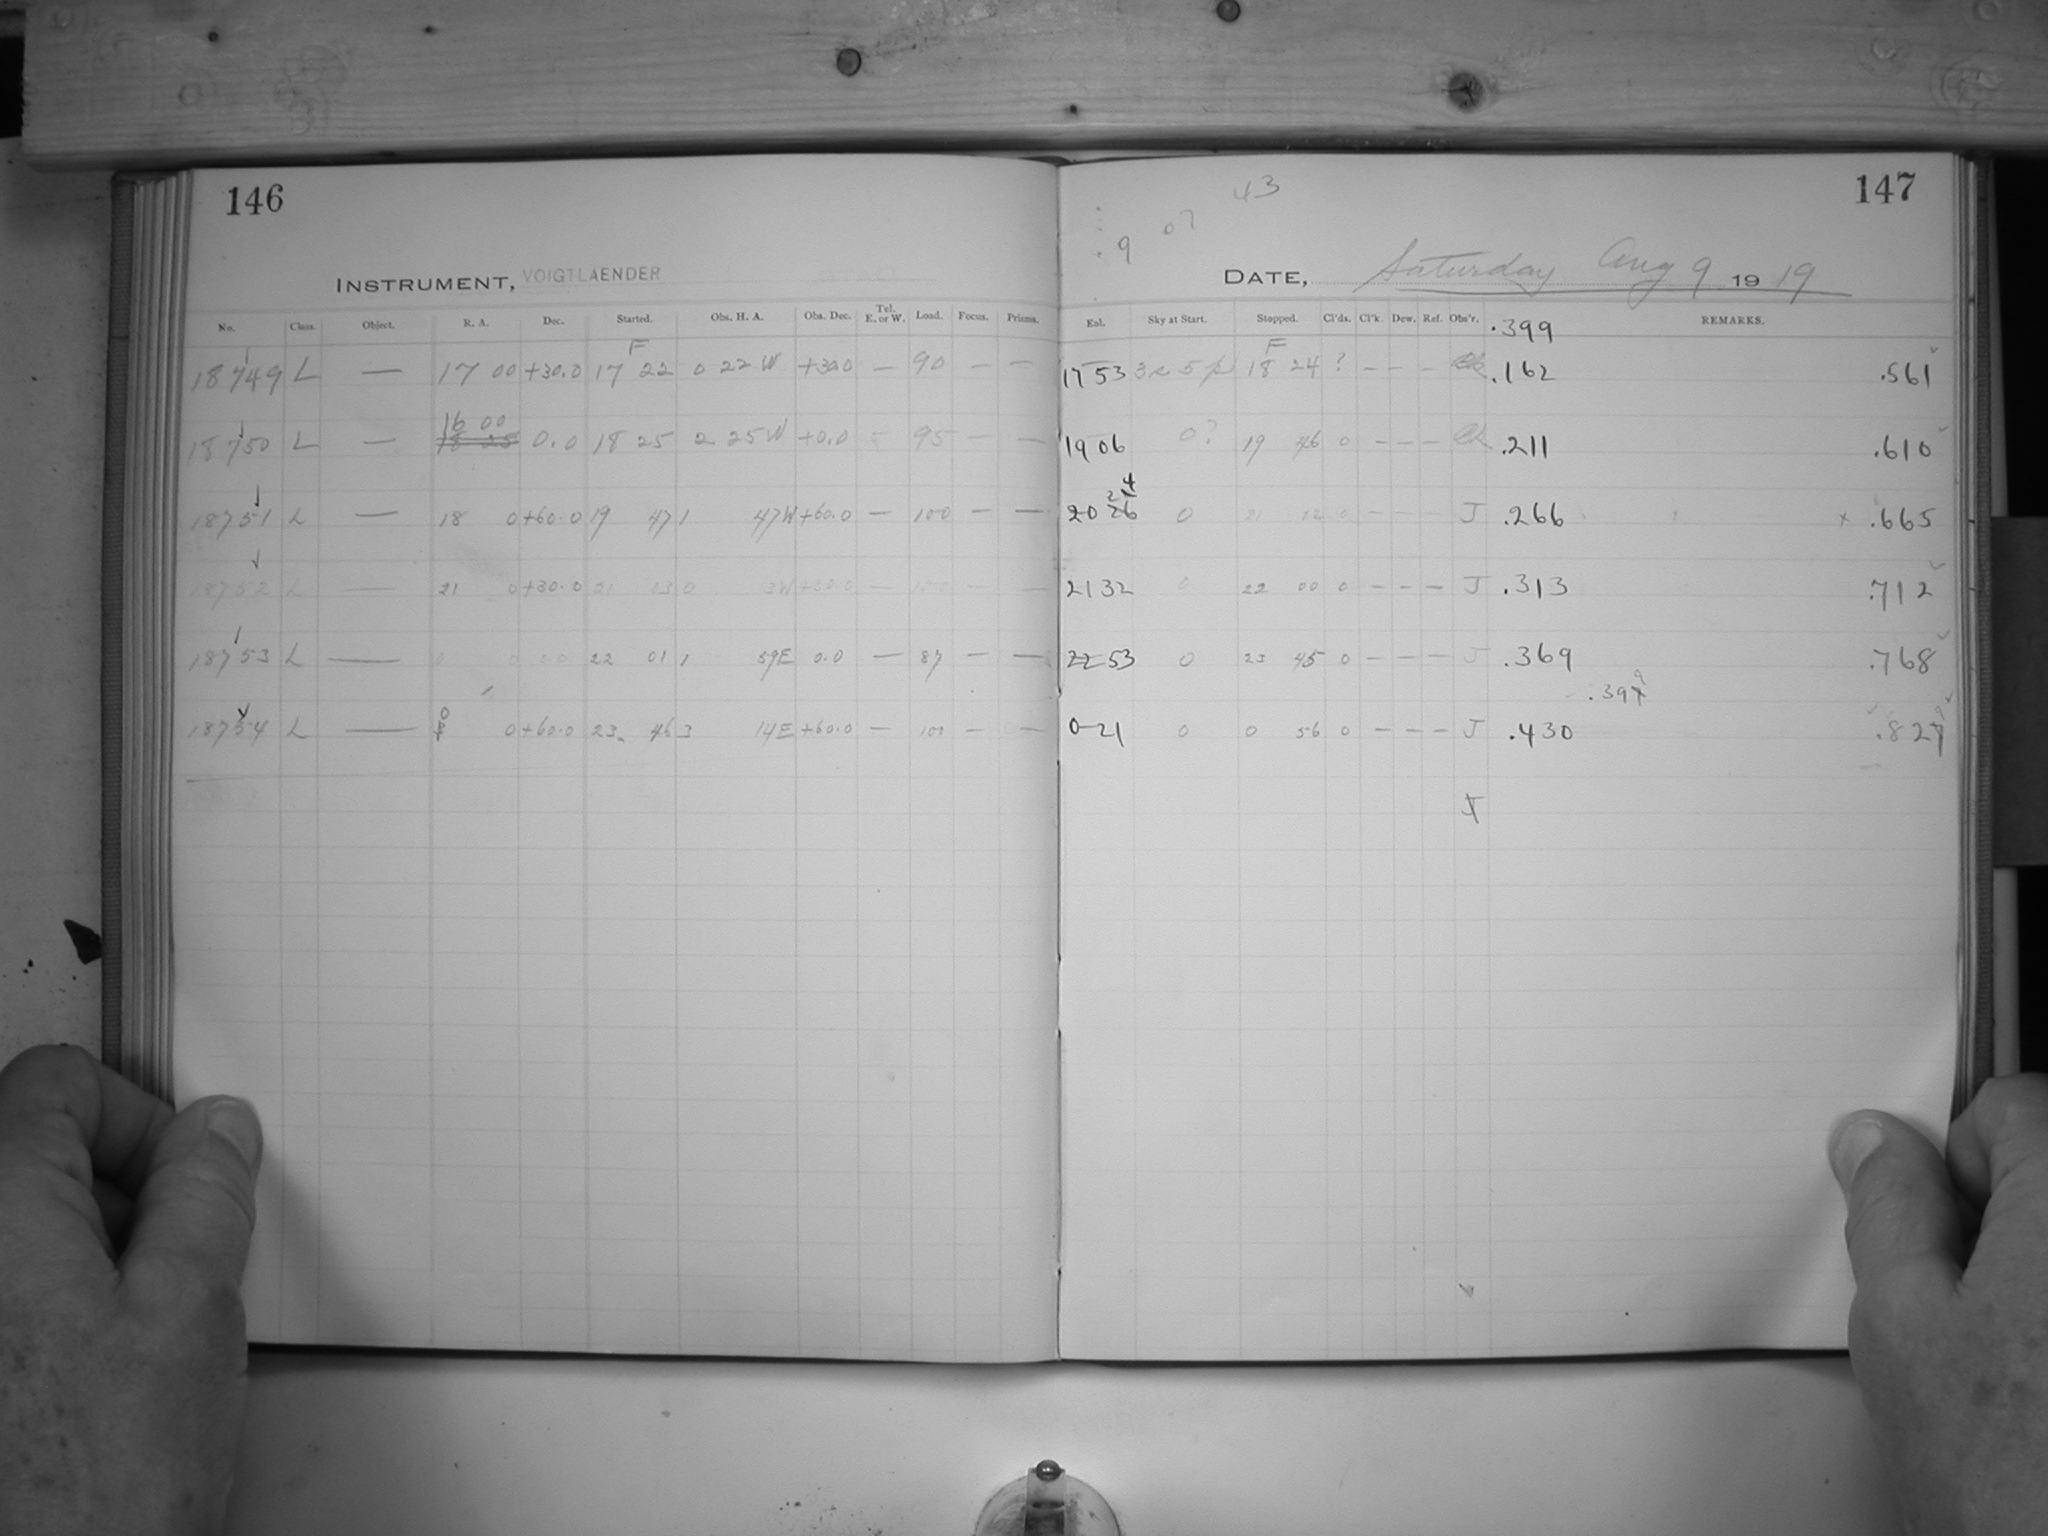 146
INSTRUMENT, VOIGTLAENDER
No. Class. Object. R. A. Dec. Started. Obs. H. A. Obs. Dec. Tel. E. or W. Load. Focus. Prisms.
F
18749 L — 17 00 +30.0 17 22 0 22 W +30.0 — 90 — —
16 00
18750 L — 18 25 0.0 18 25 2 25 W +0.0 95 — —
18751 L — 18 0 +60.0 19 47 1 47 W +60.0 — 100 — —
18752 L — 21 0 +30.0 21 03 0 3W +30.0 — 100 — —
18753 L — 0 0 0.0 22 01 1 59E 0.0 — 87 — —
0
18754 L — 0 +60.0 23 46 3 14E +60.0 — 100 — —
147
43
07
9
DATE, Saturday Aug 9 1919
Eql. Sky at Start. Stopped. Cl'ds. Cl'k. Dew. Ref. Obs'r. REMARKS.
.399
F
17 53 18 24 ? — — — .162 .561
19 06 0? 19 46 0 — — — .211 .610
24
20 26 0 21 12 0 — — — J .266 x .665
21 32 0 22 00 0 — — — J .313 .712
22 53 0 23 45 0 — — — J .369 .768
0 21 0 0 56 0 — — — J .430
J